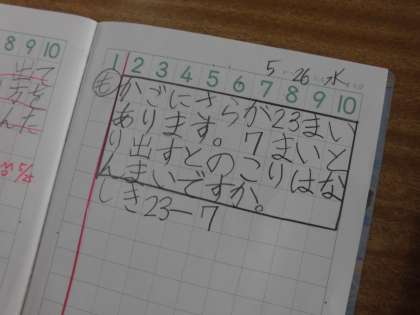 8 9 10
出て
んた
1 2 3 4 5 6 7 8 9 10
5 26 水
も かごにさらが23まい
あります。7まいと
り出すとのこりはな
んまいですか。
しき23-7